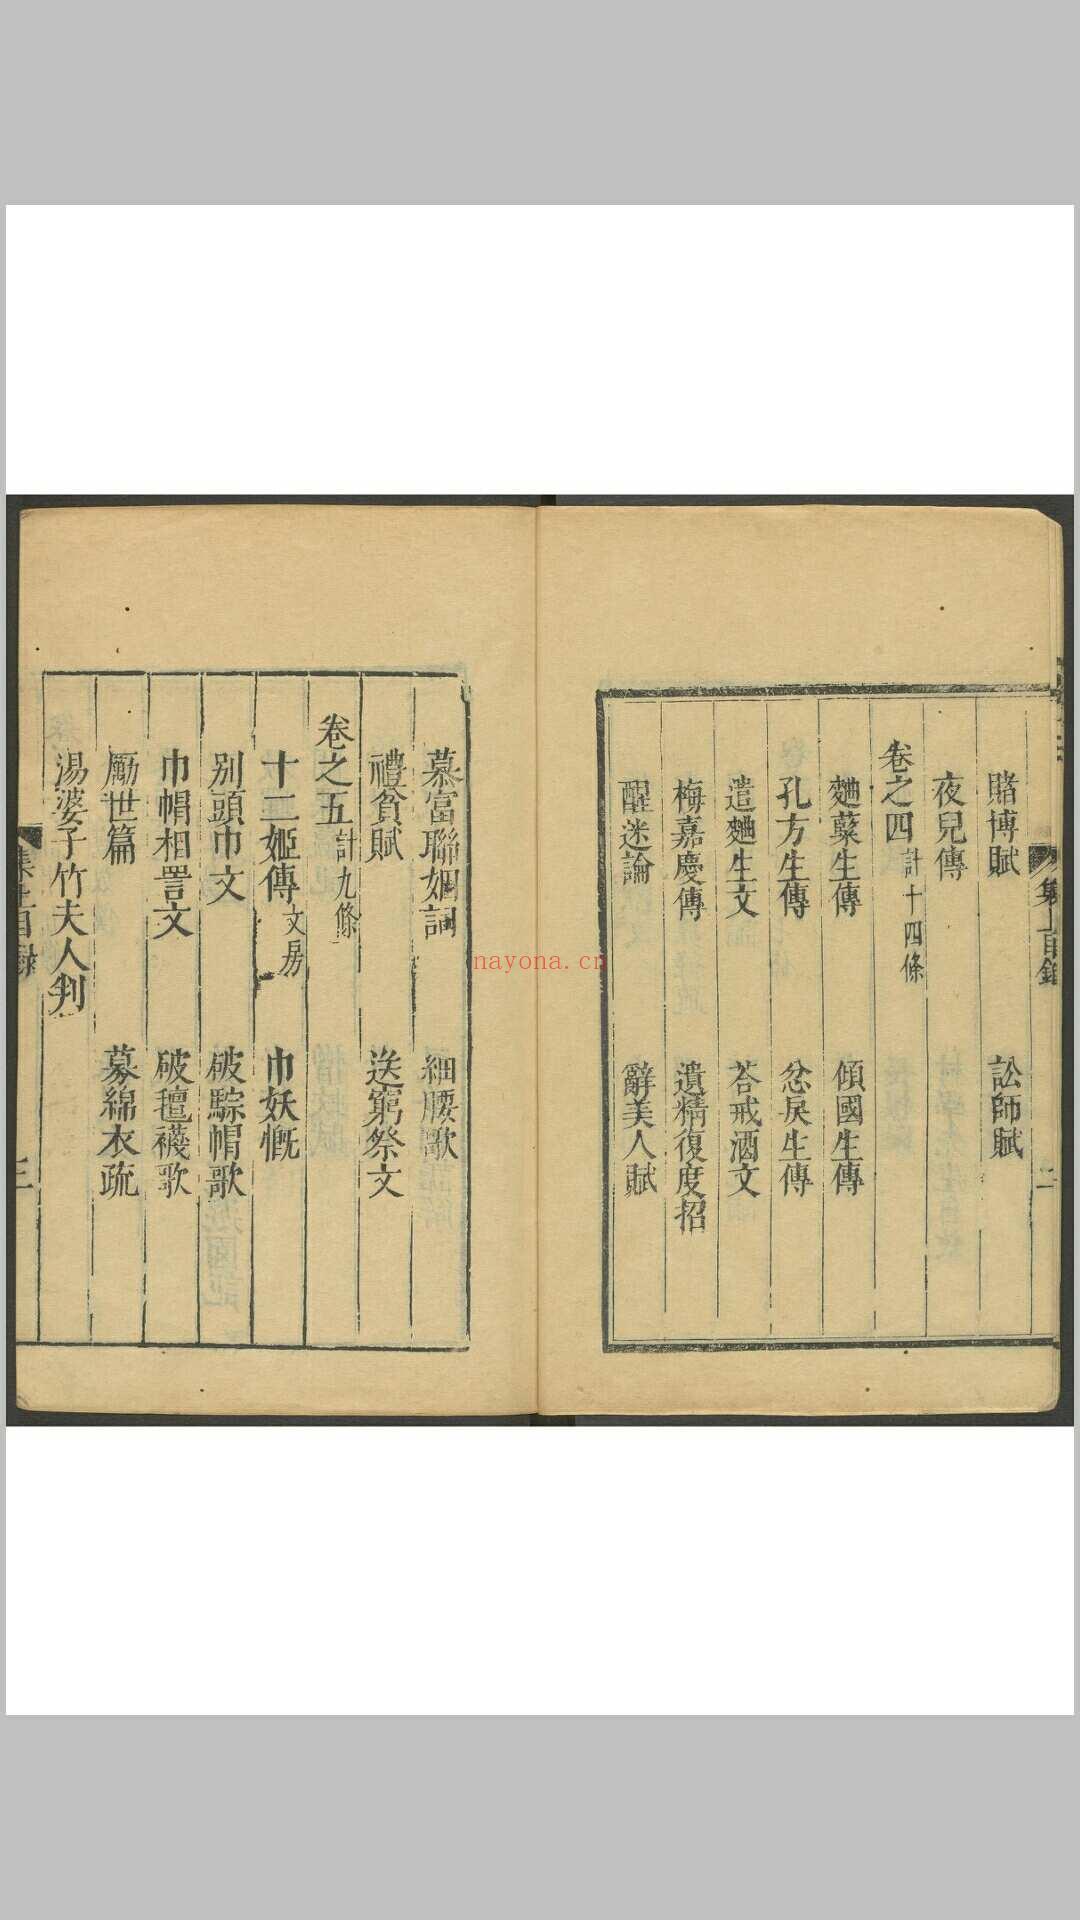 賭博賦 訟師賦
夜兒傳
卷之四 計十四條
麯蘖生傳 傾國生傳
孔方生傳 忿戾生傳
遣麯生文 荅戒酒文
梅嘉慶傳 遺精復度招
醒迷論 辭美人賦
二
慕富聯姻詞 細腰歌
禮貧賦 送窮祭文
卷之五 計九條
十二姬傳 文房 巾妖慨
別頭巾文 破騌帽歌
巾帽相詈文 破氊襪歌
勵世篇 募綿衣疏
湯婆子竹夫人判
三
nayona.cn